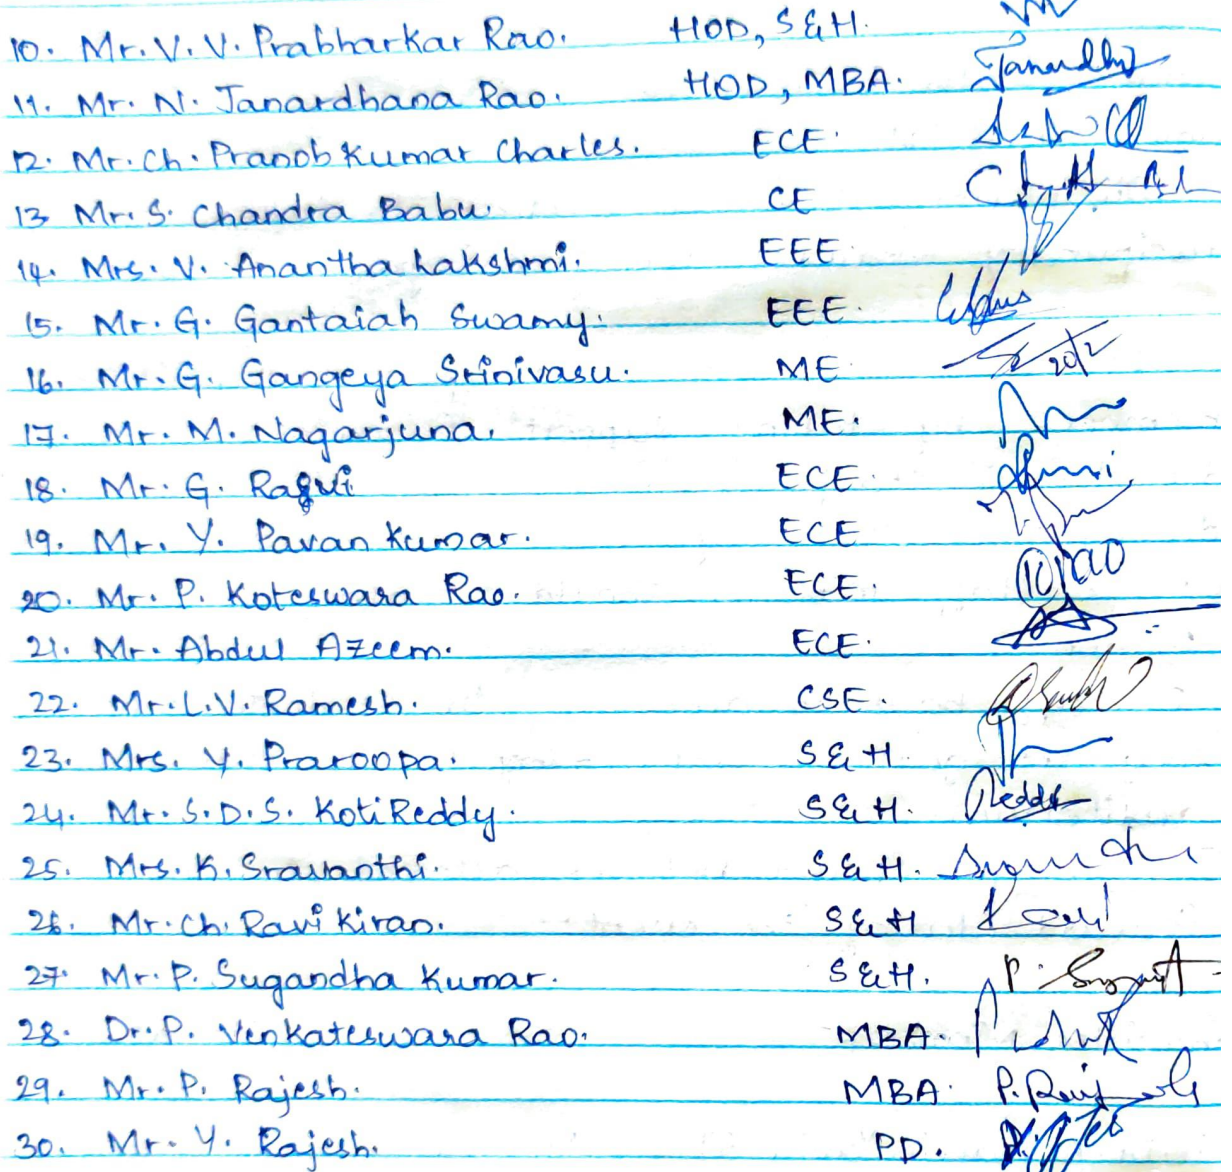 10. Mr. V. V. Prabharkar Rao. HOD, S&H.
11. Mr. N. Janardhana Rao. HOD, MBA.
12. Mr. Ch. Pranob Kumar Charles. ECE.
13 Mr. S. Chandra Babu. CE
14. Mrs. V. Anantha Lakshmi. EEE
15. Mr. G. Gantaiah Swamy. EEE.
16. Mr. G. Gangeya Srinivasu. ME 20/2
17. Mr. M. Nagarjuna. ME.
18. Mr. G. ECE.
19. Mr. Y. Pavan Kumar. ECE
20. Mr. P. Koteswara Rao. ECE.
21. Mr. Abdul Azeem. ECE.
22. Mr. L. V. Ramesh. CSE.
23. Mrs. Y. Praroopa. S&H
24. Mr. S. D. S. Koti Reddy. S&H. Reddy
25. Mrs. K. Sravanthi. S&H.
26. Mr. Ch. Ravi Kiran. S&H
27. Mr. P. Sugandha Kumar. S&H. P.
28. Dr. P. Venkateswara Rao. MBA.
29. Mr. P. Rajesh. MBA. P.
30. Mr. Y. Rajesh. PD.